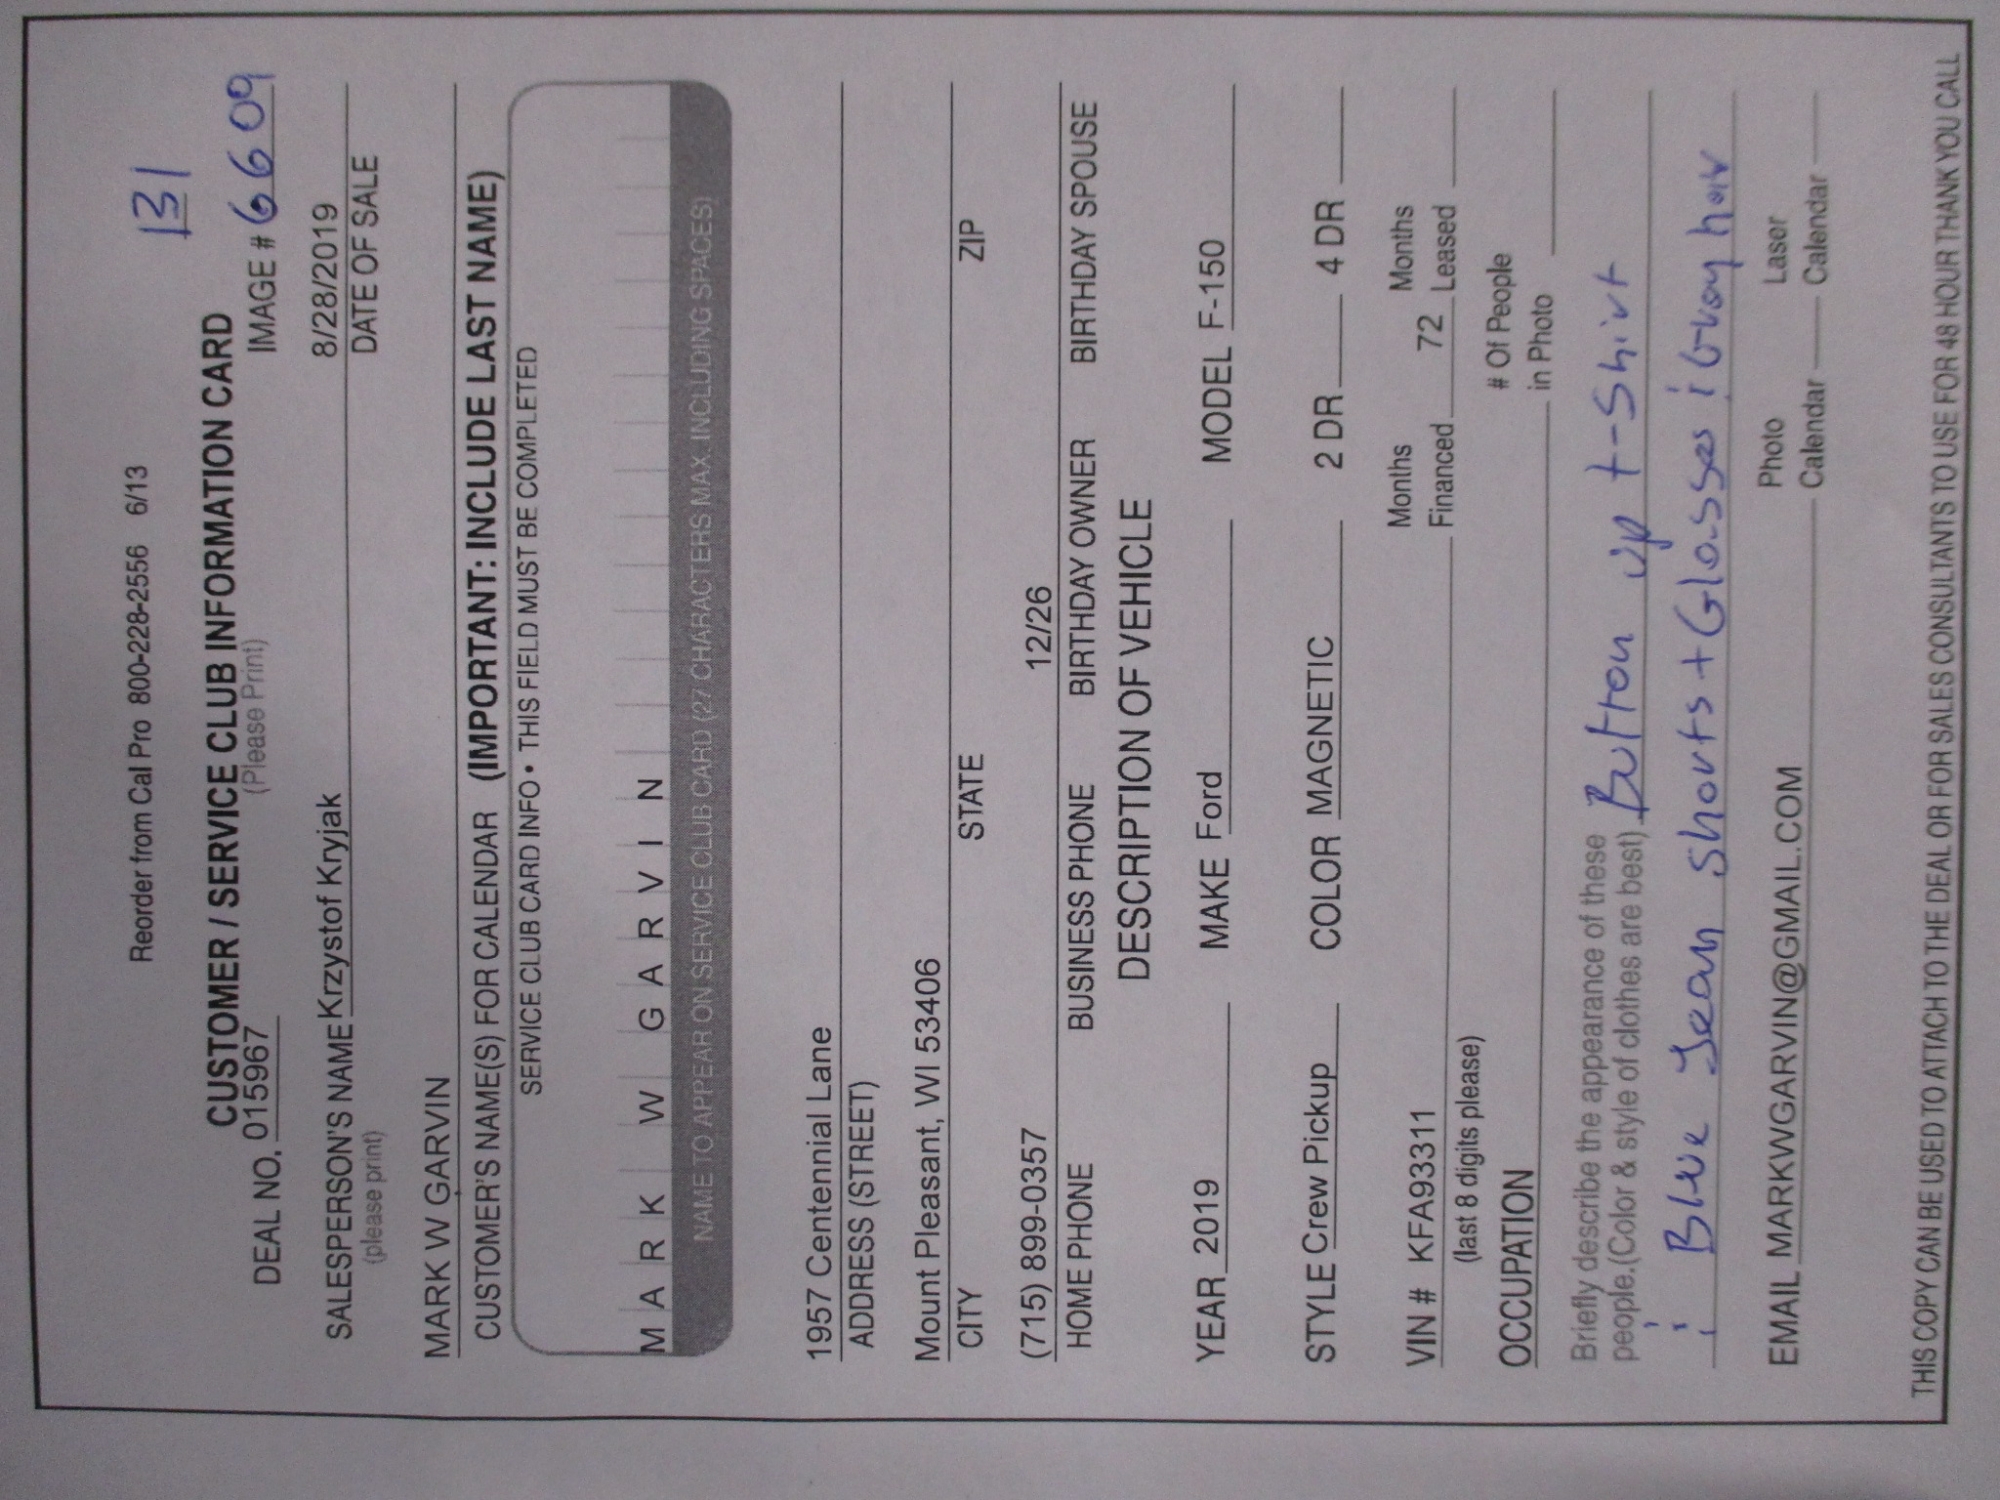 131
Reorder from Cal Pro 800-228-2556 6/13
CUSTOMER / SERVICE CLUB INFORMATION CARD
(Please Print)
DEAL NO. 015967 IMAGE # 6609
SALESPERSON'S NAME Krzystof Kryjak 8/28/2019
(please print) DATE OF SALE
MARK W GARVIN
CUSTOMER'S NAME(S) FOR CALENDAR (IMPORTANT: INCLUDE LAST NAME)
SERVICE CLUB CARD INFO • THIS FIELD MUST BE COMPLETED
M A R K W G A R V I N
NAME TO APPEAR ON SERVICE CLUB CARD (27 CHARACTERS MAX. INCLUDING SPACES)
1957 Centennial Lane
ADDRESS (STREET)
Mount Pleasant, WI 53406
CITY STATE ZIP
(715) 899-0357 12/26
HOME PHONE BUSINESS PHONE BIRTHDAY OWNER BIRTHDAY SPOUSE
DESCRIPTION OF VEHICLE
YEAR 2019 MAKE Ford MODEL F-150
STYLE Crew Pickup COLOR MAGNETIC 2 DR 4 DR
VIN # KFA93311 Months Financed 72 Months Leased
(last 8 digits please)
OCCUPATION # Of People in Photo
Briefly describe the appearance of these
people.(Color & style of clothes are best) Button up t-shirt
; Blue Jean shorts + Glasses ; Gray hair
EMAIL MARKWGARVIN@GMAIL.COM Photo Calendar Laser Calendar
THIS COPY CAN BE USED TO ATTACH TO THE DEAL OR FOR SALES CONSULTANTS TO USE FOR 48 HOUR THANK YOU CALL